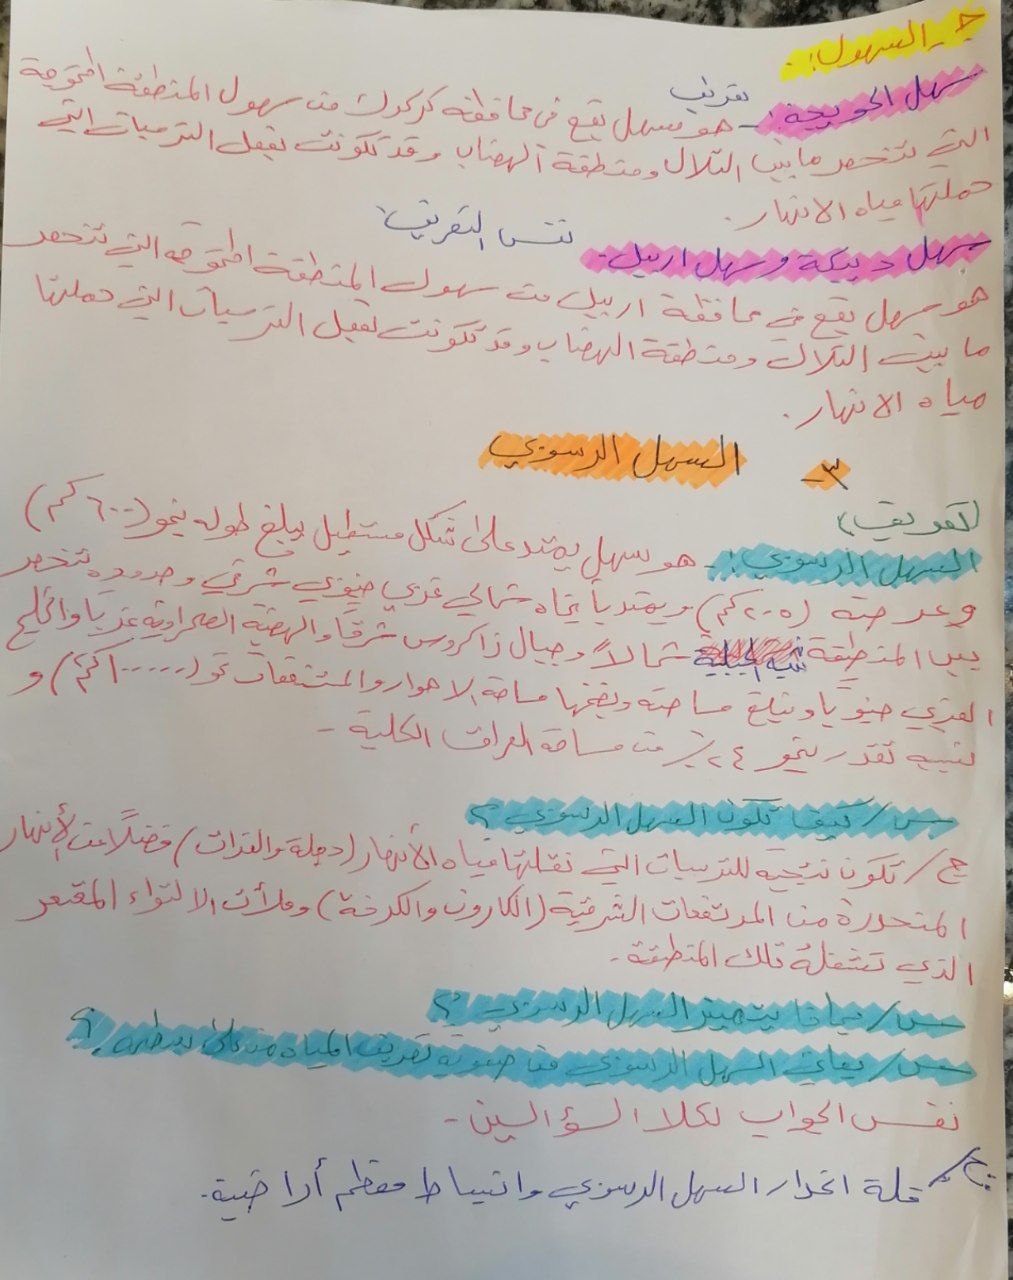 ج- السهول:-
سهل الحويجة:- تعريف هو سهل يقع في محافظة كركوك من سهول المنطقة المتموجة
التي تنحصر ما بين التلال ومنطقة الهضاب وقد تكونت بفعل الترسبات التي
حملتها مياه الانهار.
سهل ديبكة وسهل اربيل:- نفس التعريف
هو سهل يقع في محافظة اربيل من سهول المنطقة المتموجة التي تنحصر
ما بين التلال ومنطقة الهضاب وقد تكونت بفعل الترسبات التي حملتها
مياه الانهار.
٣- السهل الرسوبي
(تعريف)
السهل الرسوبي:- هو سهل يمتد على شكل مستطيل يبلغ طوله نحو (٦٠٠ كم)
وعرضه (٢٠٠ كم) ويمتد بأتجاه شمالي غربي جنوبي شرقي وحدوده تنحصر
بين المنطقة شبه الجبلية شمالاً وجبال زاكروس شرقاً والهضبة الصحراوية غرباً والخليج
العربي جنوباً وتبلغ مساحته وبضمنها مساحة الاهوار والمستنقعات نحو (١٠٠٠٠٠ كم٢) و
بنسبة تقدر بنحو ٢٤٪ من مساحة العراق الكلية -
س/ كيف تكون السهل الرسوبي ؟
ج/ تكون نتيجة للترسبات التي نقلتها مياه الأنهار (دجلة والفرات) فضلاً عن الأنهار
المنحدرة من المرتفعات الشرقية (الكارون والكرخة) وملأت الالتواء المقعر
الذي تشغله تلك المنطقة -
س/ بماذا يتميز السهل الرسوبي ؟
س/ يعاني السهل الرسوبي من صعوبة تصريف المياه من على سطحه ؟
نفس الجواب لكلا السؤالين -
ج/ قلة انحدار السهل الرسوبي وانبساط معظم أراضية.